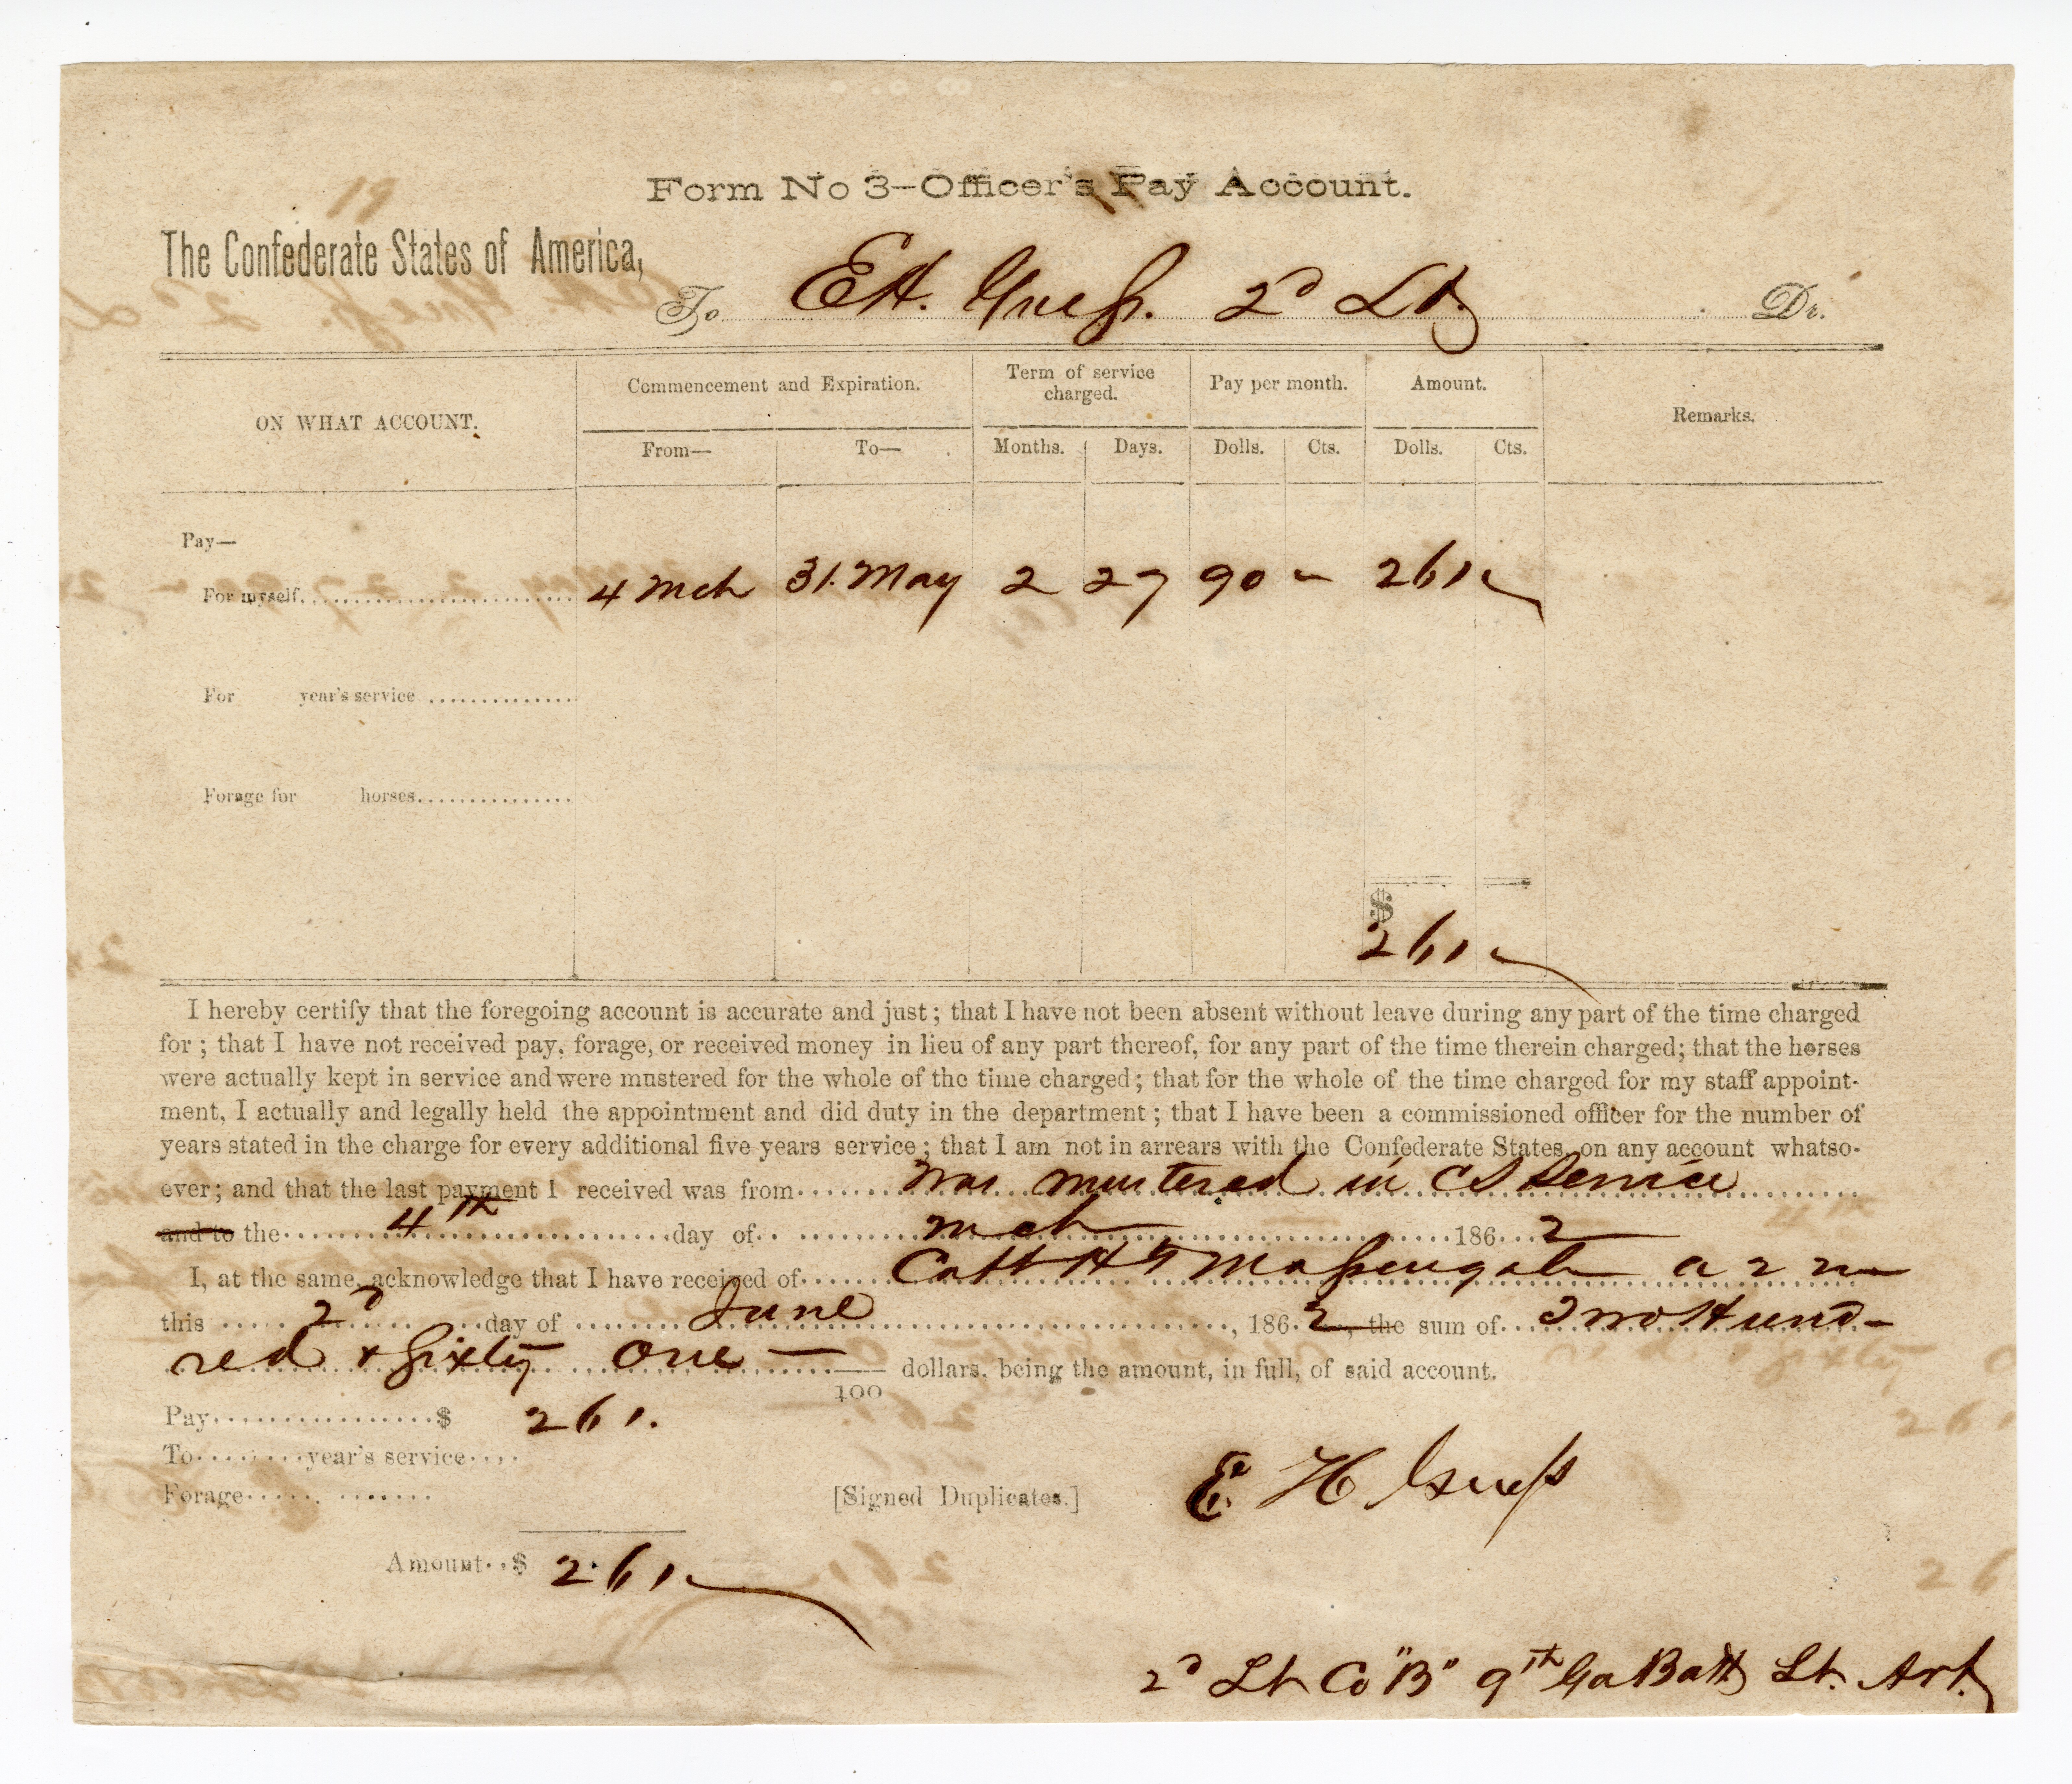 Form No 3—Officer's Pay Account.
The Confederate States of America,
To E H. Guess. 2d Lt Dr.
ON WHAT ACCOUNT. Commencement and Expiration. Term of service charged. Pay per month. Amount. Remarks.
From— To— Months. Days. Dolls. Cts. Dolls. Cts.
Pay—
For myself. 4 Mch 31. May 2 27 90 — 261 —
For year's service
Forage for horses
$
261 —
I hereby certify that the foregoing account is accurate and just; that I have not been absent without leave during any part of the time charged
for; that I have not received pay, forage, or received money in lieu of any part thereof, for any part of the time therein charged; that the horses
were actually kept in service and were mustered for the whole of the time charged; that for the whole of the time charged for my staff appoint-
ment, I actually and legally held the appointment and did duty in the department; that I have been a commissioned officer for the number of
years stated in the charge for every additional five years service; that I am not in arrears with the Confederate States, on any account whatso-
ever; and that the last payment I received was from Was mustered in C S Service
and to the 4th day of Mch 186 2
I, at the same, acknowledge that I have received of Capt H Massengale a 2 m
this 2d day of June, 186 2, the sum of Two Hund-
red & Sixty One — /100 dollars, being the amount, in full, of said account.
Pay $ 261.
To year's service
Forage
[Signed Duplicates.] E H Guess
Amount $ 261 —
2d Lt Co "B" 9th Ga Batt Lt. Art.